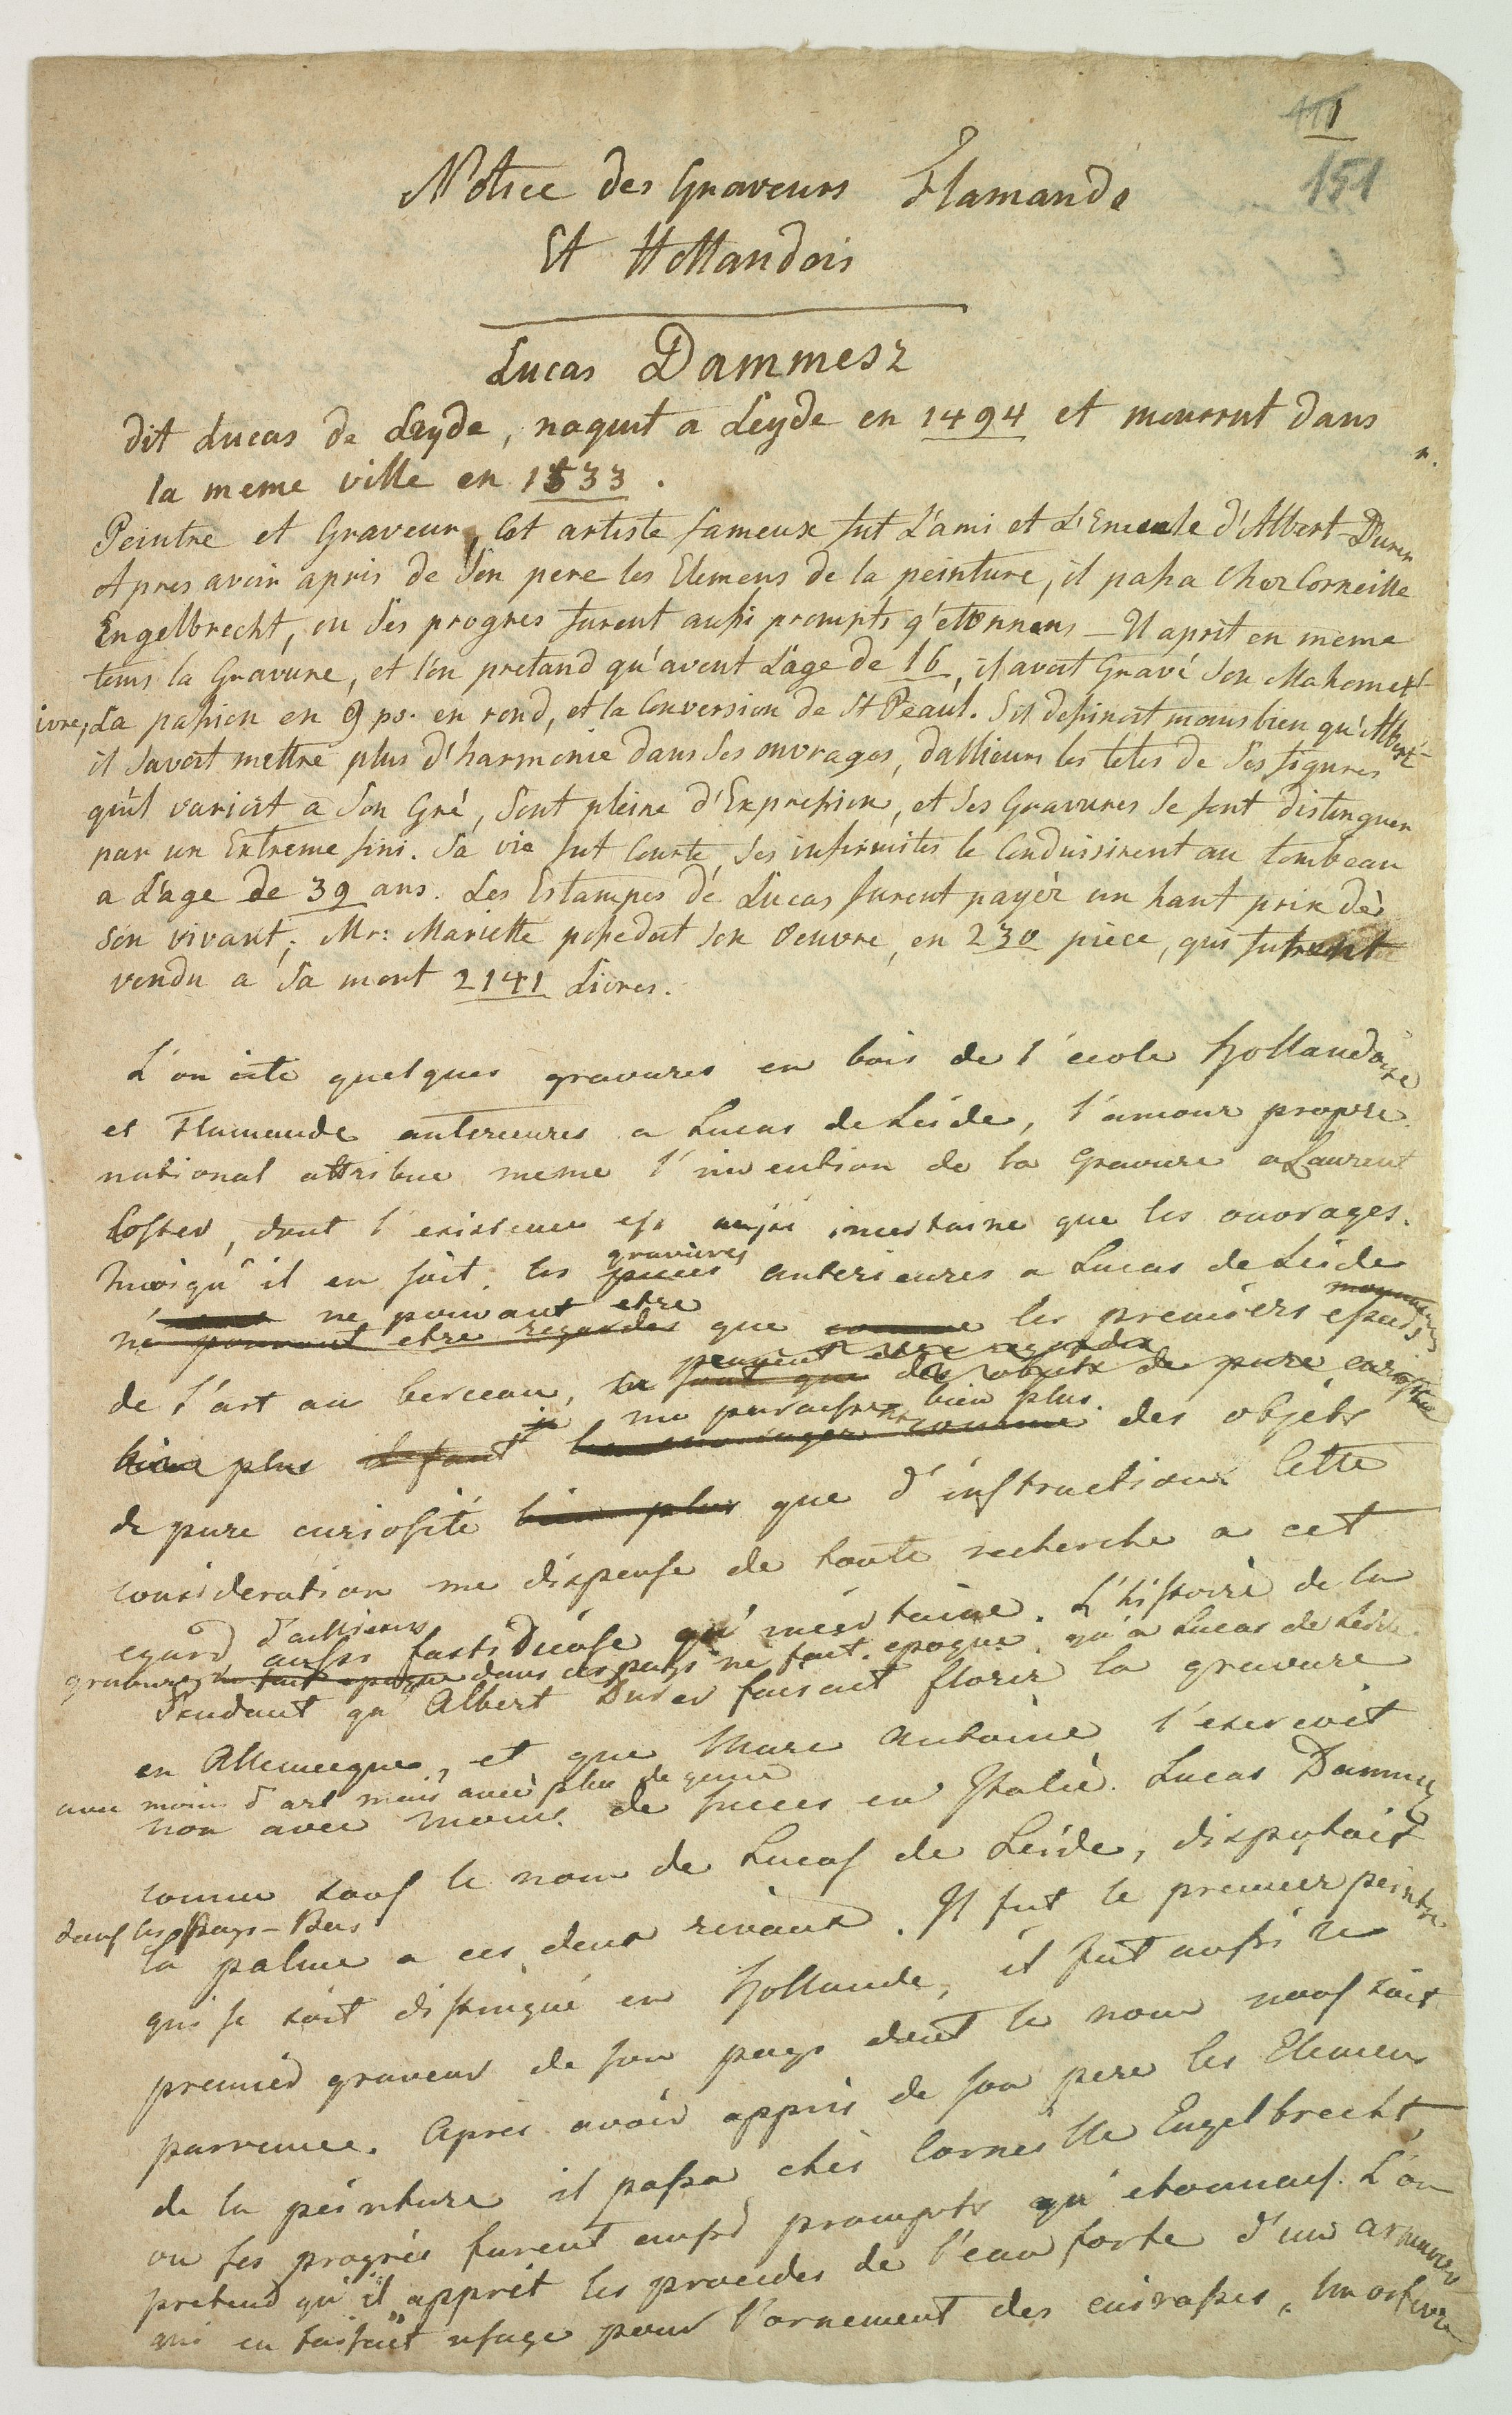 1
151
Notice des Graveurs Flamands
Et Hollandois
Lucas Dammesz
dit Lucas de Leyde, naquit a Leyde en 1494 et mourrut dans
la meme ville en 1533.
Peintre et Graveur, Cet artiste fameux fut L'ami et L'Emule d'Albert-Durer
Apres avoir apris de Son pere les Elemens de la peinture, il passa Chez Corneille
Engelbrecht, ou Ses progres furent aussi prompts q'etonnens - Il aprit en meme
tems la Gravure, et l'on pretand qu'avent L'age de 16, il avoit Gravé Son Mahomet
ivre, La passion en 9 ps. en rond, et la Conversion de St Peaul. S'il dessinoit moins bien qu'Albert
il Savoit mettre plus d'harmonie dans Ses ouvrages, dallieurs les tetes de Ses figures
qu'il varioit a Son Gré, Sont pleine d'Expression, et Ses Gravures Se font distinguer
par un Extreme fini. Sa vie fut Courte, Ses infirmités le Conduisirent au tombeau
a L'age de 39 ans. Les Estampes de Lucas furent payéz un haut prix dès
Son vivant; Mr: Mariette possedoit Son Oeuvre, en 230 piece, qui furent
vendu a Sa mort 2141 Livres.
L'on cite quelques gravures en bois de l'ecole hollandoise
et Flamande anterieures a Lucas de Leide, l'amour propre
national attribue meme l'invention de la Gravure a Laurent
Coster, dont l'existence est aussi incertaine que les ouvrages.
gravures
Quoiqu'il en soit, les pieces anterieures a Lucas de Leide
ne pouvant etre
ne pouvant etre regardes que comme les premiers essais
de l'art au berceau, sont que des objets de pure curiosité
peuvent etre regardes
me paraissent bien plus
bien plus il faut des objets
de pure curiosité bien plus que d'instruction. Cette
consideration me dispense de toute recherche a cet
egard d'aillieurs aussi fastidieuse qu'incertaine. L'histoire de la
gravure dans ces pays ne fait epoque qu'a Lucas de Leide.
Pendant qu'Albert Durer faisait florir la gravure
en Allemagne, et que Marc Antoine l'exercoit
avec moins d'art mais avec plus de genie
non avec moins de succes en Italie. Lucas Dammesz
connu sous le nom de Lucas de Leide, disputait
dans les Pays-Bas
la palme a ces deux rivaux. Il fut le premier peintre
qui se soit distingué en hollande, il fut aussi le
premier graveur de son pays dont le nom nous soit
parvenu. Après avoir appris de son pere les Elemens
de la peinture il passa chés Corneille Engelbrecht,
ou ses progrès furent aussi prompts qu'etonnans. L'on
pretend qu'il apprit les procedes de l'eau forte d'un armurier
qui en faisait usage pour l'ornement des cuirasses, Un orfevre